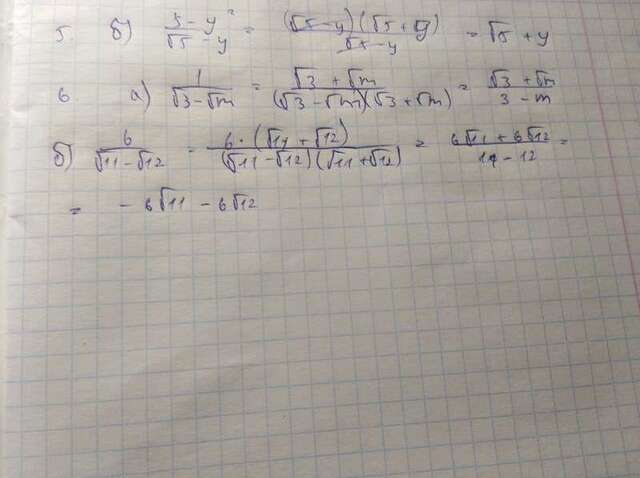 5. б) (5 - y²)/(√5 - y) = ((√5 - y)(√5 + y))/(√5 - y) = √5 + y
6. а) 1/(√3 - √m) = (√3 + √m)/((√3 - √m)(√3 + √m)) = (√3 + √m)/(3 - m)
б) 6/(√11 - √12) = (6 · (√11 + √12))/((√11 - √12)(√11 + √12)) = (6√11 + 6√12)/(11 - 12) =
= - 6√11 - 6√12